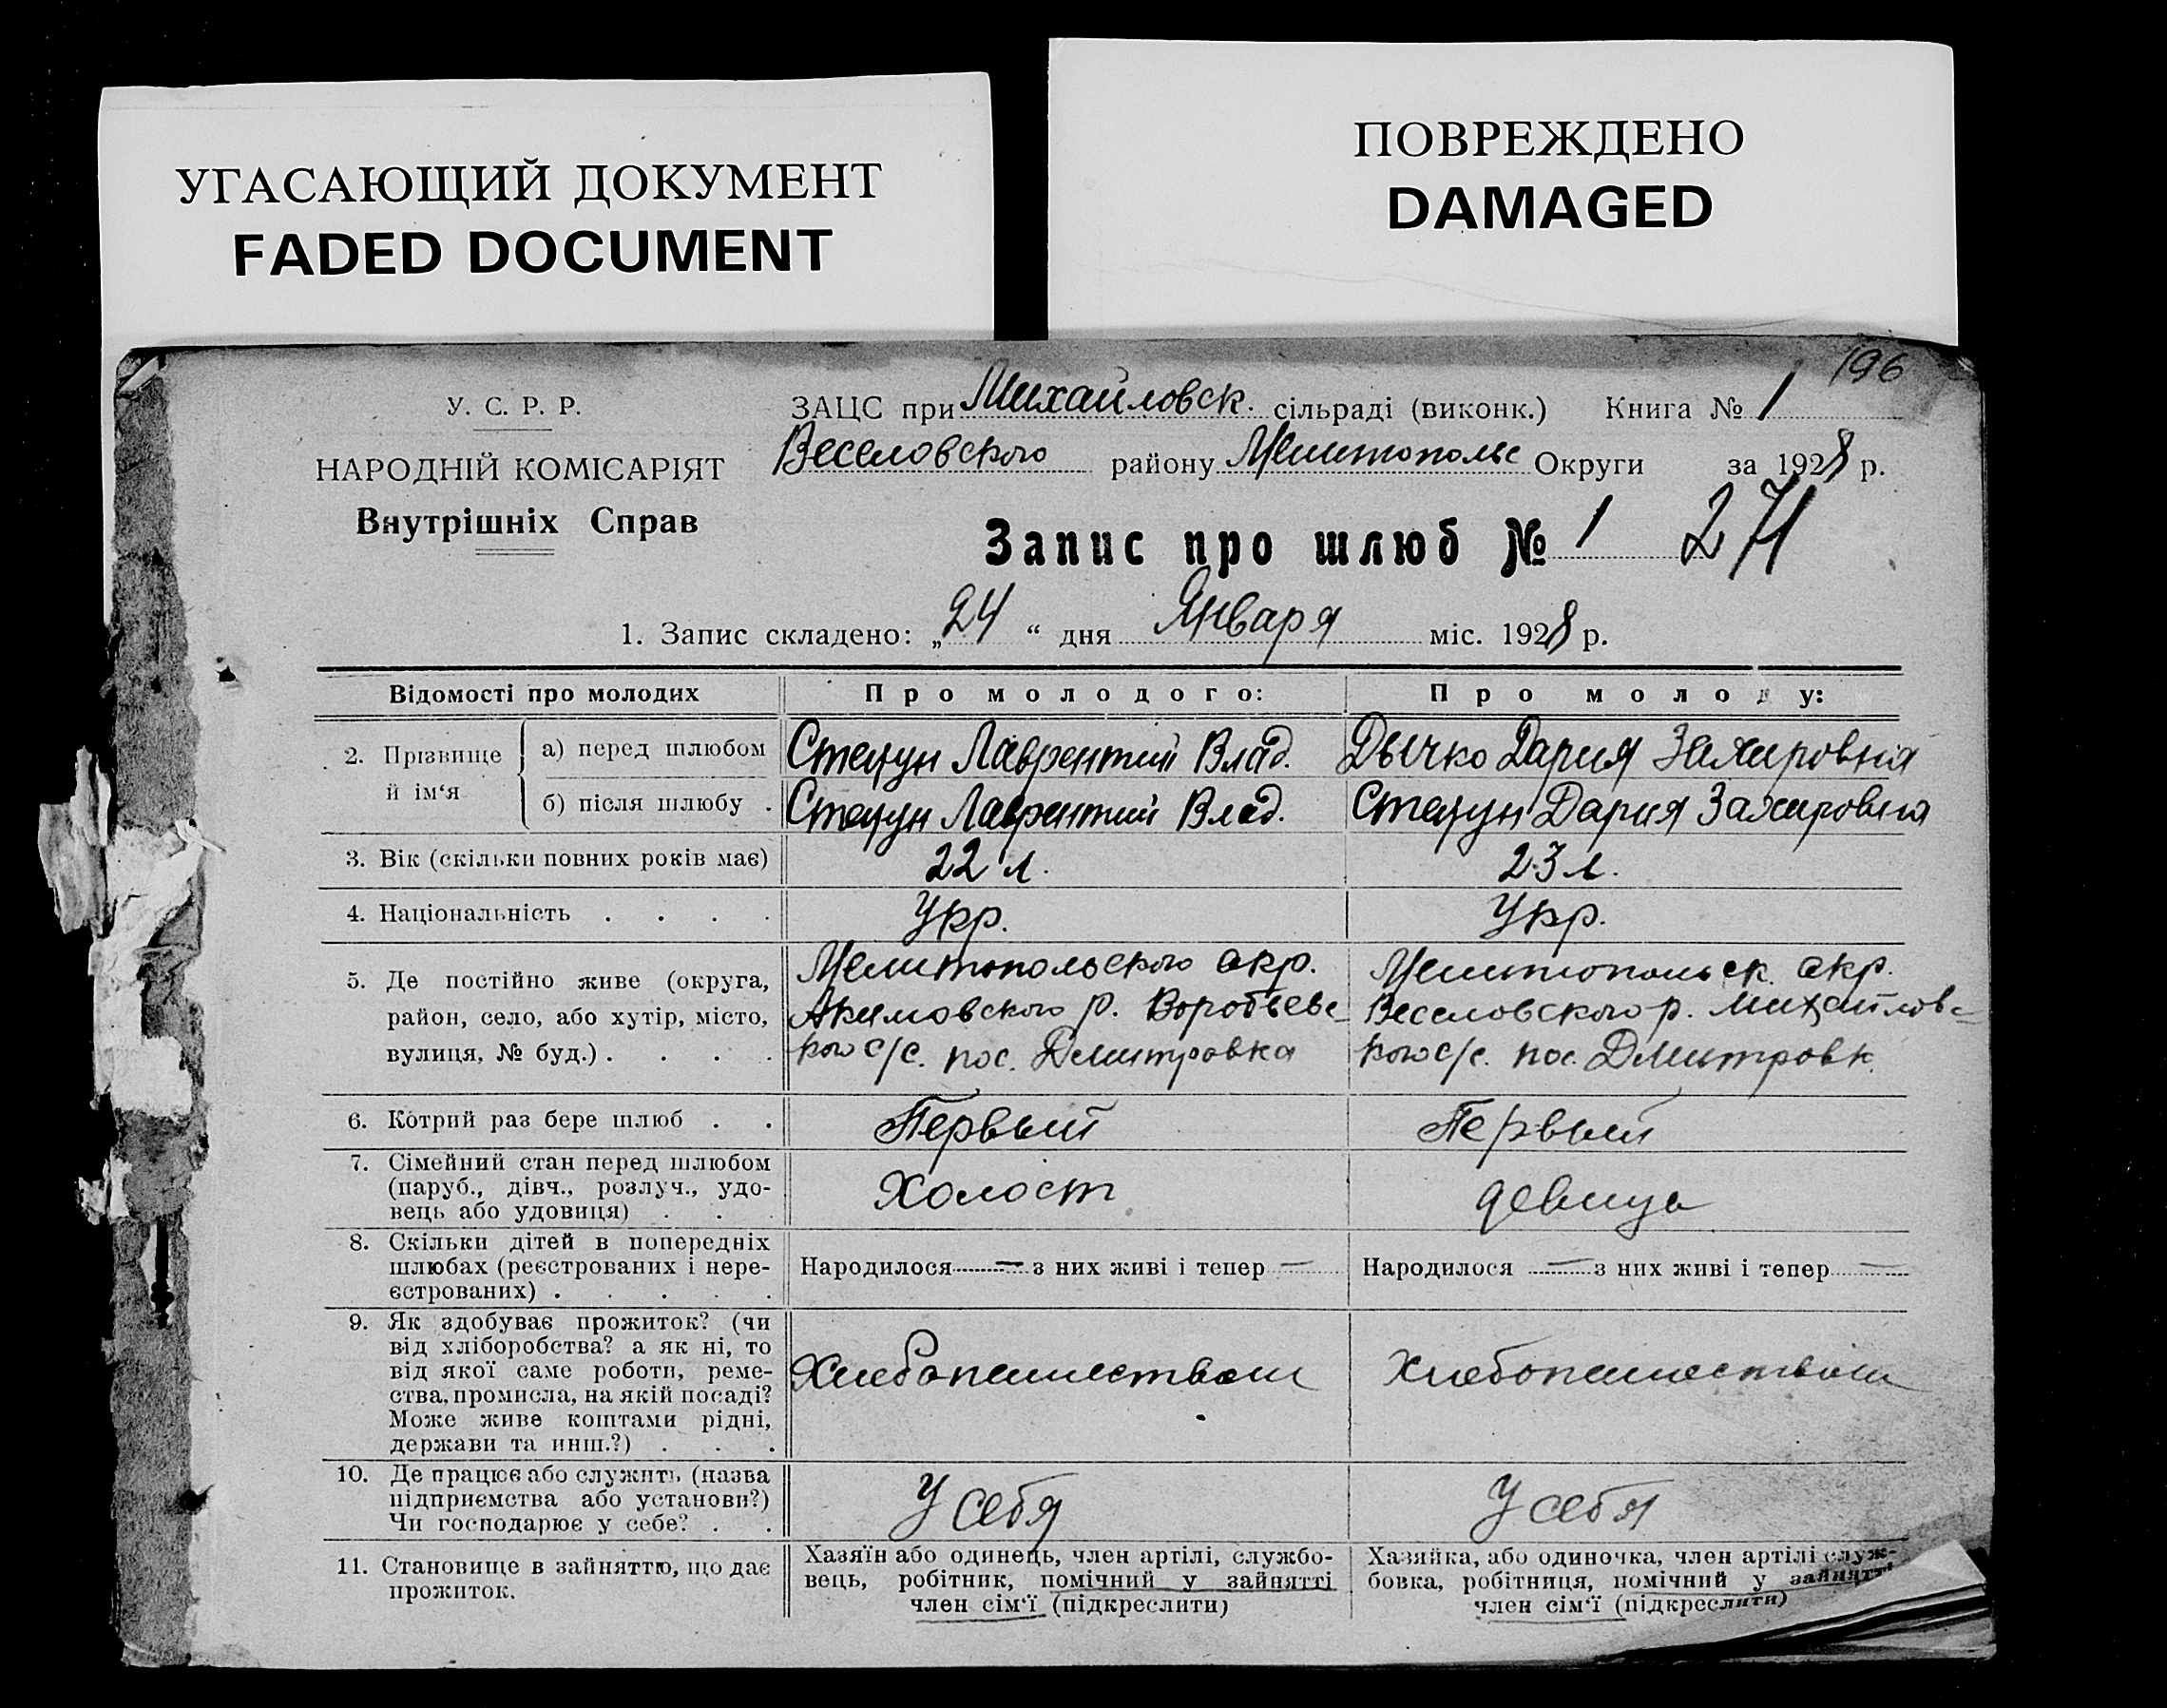 УГАСАЮЩИЙ ДОКУМЕНТ
FADED DOCUMENT
ПОВРЕЖДЕНО
DAMAGED
196
У. С. Р. Р.
НАРОДНІЙ КОМІСАРІЯТ
Внутрішніх Справ
ЗАЦС при Михайловск. сільраді (виконк.) Книга № 1
Веселовского району Мелитопольс Округи за 1928 р.
Запис про шлюб № 1 271
1. Запис складено: „24“ дня Января міс. 1928 р.
Відомості про молодих
Про молодого:
Про молоду:
2. Прізвище й ім‘я
а) перед шлюбом
Лаврентий Влад.
Дычко Дария Захаровна
б) після шлюбу .
Лаврентий Влад.
Дария Захаровна
3. Вік (скільки повних років має)
22 л.
23 л.
4. Національність . . . .
Укр.
Укр.
5. Де постійно живе (округа,
район, село, або хутір, місто,
вулиця, № буд.) . . . .
Мелитопольского окр.
Акимовского р. Воробьевс-
кого с/с. пос. Дмитровка
Мелитопольск. окр.
Веселовского р. Михайловс-
кого с/с. пос. Дмитровк.
6. Котрий раз бере шлюб . .
Первый
Первый
7. Сімейний стан перед шлюбом
(паруб., дівч., розлуч., удо-
вець або удовиця) . . .
Холост
девица
8. Скільки дітей в попередніх
шлюбах (реєстрованих і нере-
єстрованих) . . . . .
Народилося — з них живі і тепер —
Народилося — з них живі і тепер —
9. Як здобуває прожиток? (чи
від хліборобства? а як ні, то
від якої саме роботи, реме-
ства, промисла, на якій посаді?
Може живе коштами рідні,
держави та инш.?) . . .
Хлебопашеством
Хлебопашеством
10. Де працює або служить (назва
підприємства або установи?)
Чи господарює у себе? . .
У себя
У себя
11. Становище в зайняттю, що дає
прожиток.
Хазяїн або одинець, член артілі, службо-
вець, робітник, помічний у зайнятті
член сім‘ї (підкреслити)
Хазяйка, або одиночка, член артілі служ-
бовка, робітниця, помічний у зайнятті
член сім‘ї (підкреслити)